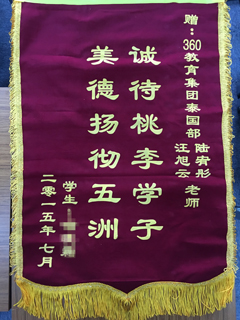 赠：360教育集团泰国部 陆宥彤
汪旭云 老师
诚待桃李学子
美德扬彻五洲
学生
二零一五年七月